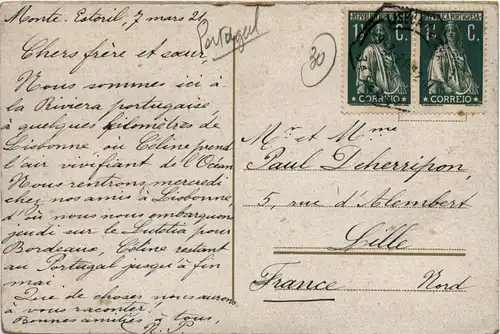 Monte-Estoril, 7 mars 21
Portugal
30
Chers frère et sœur,
Nous sommes ici à
la Riviera portugaise
à quelques kilomètres de
Lisbonne, où Céline prend
l'air vivifiant de l'Océan
Nous rentrons mercredi
chez nos amis à Lisbonne,
d'où nous nous embarquons
jeudi sur le Lutetia pour
Bordeaux, Céline restant
au Portugal jusqu'à fin
mai.
Que de choses nous aurons
à vous raconter.
Bonnes amitiés à tous,
REPUBLICA PORTUGUESA
1½ C.
CORREIO
REPUBLICA PORTUGUESA
1½ C.
CORREIO
Mr et Mme
Paul Deherripon,
5, rue d'Alembert
Lille
France Nord